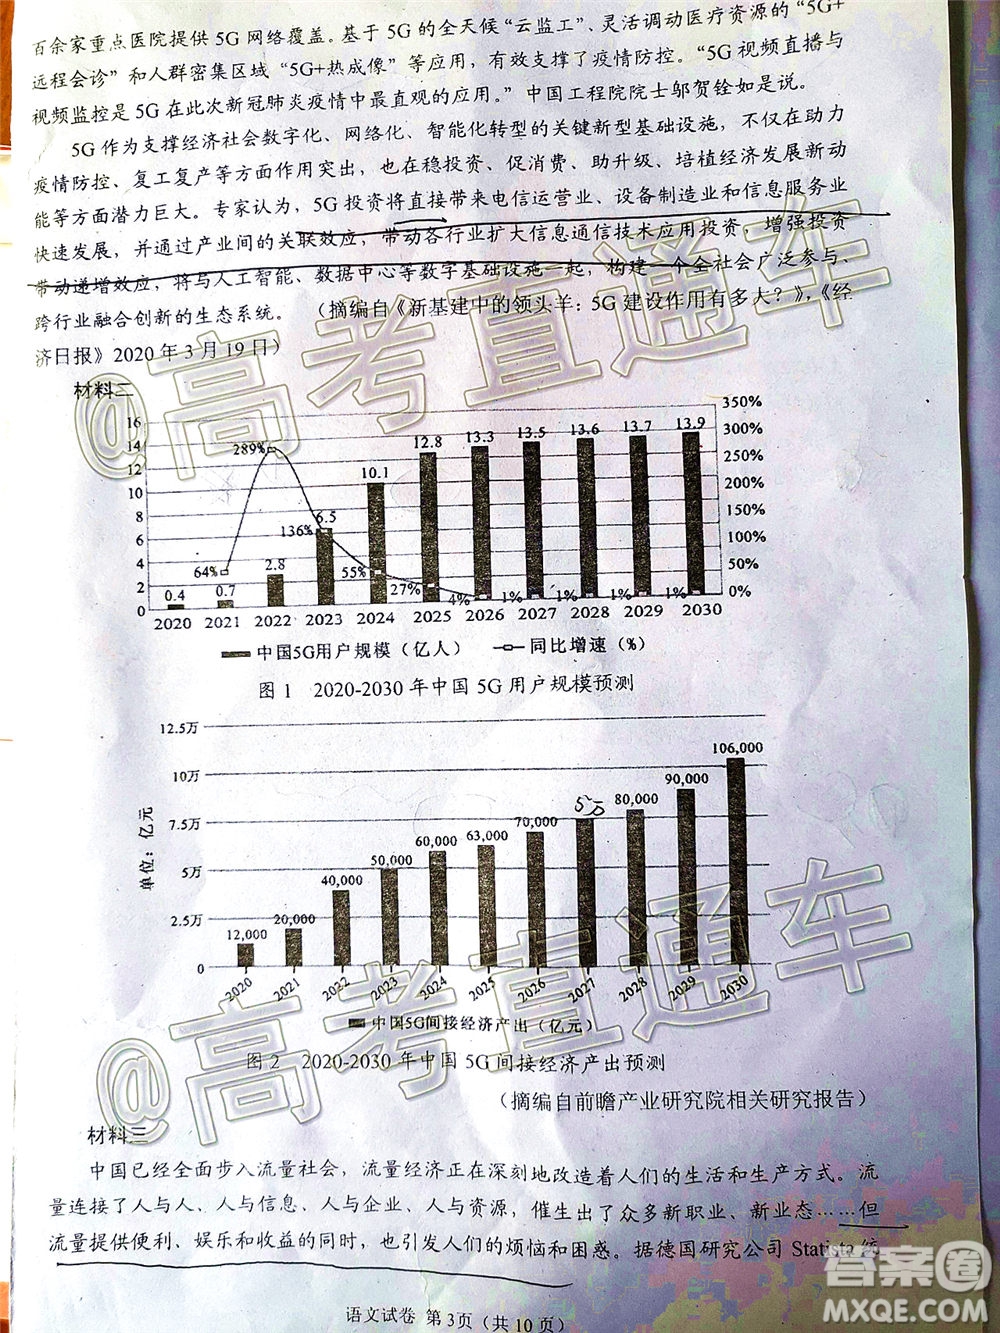 百余家重点医院提供 5G 网络覆盖。基于 5G 的全天候“云监工”、灵活调动医疗资源的“5G+
远程会诊”和人群密集区域“5G+热成像”等应用，有效支撑了疫情防控。“5G 视频直播与
视频监控是 5G 在此次新冠肺炎疫情中最直观的应用。”中国工程院院士邬贺铨如是说。
5G 作为支撑经济社会数字化、网络化、智能化转型的关键新型基础设施，不仅在助力
疫情防控、复工复产等方面作用突出，也在稳投资、促消费、助升级、培植经济发展新动
能等方面潜力巨大。专家认为，5G 投资将直接带来电信运营业、设备制造业和信息服务业
快速发展，并通过产业间的关联效应，带动各行业扩大信息通信技术应用投资，增强投资
带动递增效应，将与人工智能、数据中心等数字基础设施一起，构建一个全社会广泛参与、
跨行业融合创新的生态系统。 （摘编自《新基建中的领头羊：5G 建设作用有多大？》，《经
济日报》2020 年 3 月 19 日）
材料二
16 14 12 10 8 6 4 2 0
350% 300% 250% 200% 150% 100% 50% 0%
0.4 0.7 2.8 6.5 10.1 12.8 13.3 13.5 13.6 13.7 13.9
64% 289% 136% 55% 27% 4% 1% 1% 1% 1%
2020 2021 2022 2023 2024 2025 2026 2027 2028 2029 2030
中国5G用户规模（亿人） 同比增速（%）
图 1 2020-2030 年中国 5G 用户规模预测
单位：亿元
12.5万 10万 7.5万 5万 2.5万 0
12,000 20,000 40,000 50,000 60,000 63,000 70,000 5万 80,000 90,000 106,000
2020 2021 2022 2023 2024 2025 2026 2027 2028 2029 2030
中国5G间接经济产出（亿元）
图 2 2020-2030 年中国 5G 间接经济产出预测
（摘编自前瞻产业研究院相关研究报告）
材料三
中国已经全面步入流量社会，流量经济正在深刻地改造着人们的生活和生产方式。流
量连接了人与人、人与信息、人与企业、人与资源，催生出了众多新职业、新业态……但
流量提供便利、娱乐和收益的同时，也引发人们的烦恼和困惑。据德国研究公司 Statista 统
语文试卷 第 3页（共 10 页）
@高考直通车
@高考直通车
答案圈
MXQE.COM